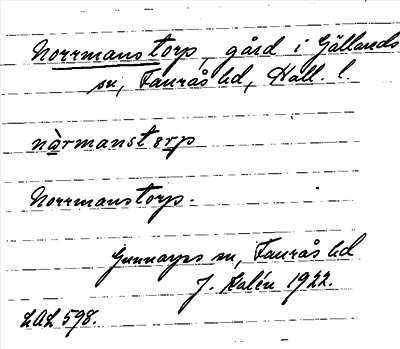 Norrmanstorp, gård i Gällands
sn, Faurås hd, Hall. l.
nòrmanstərp
Norrmanstorp.
Gunnarps sn, Faurås hd
J. Kalén 1922.
LAL 598.